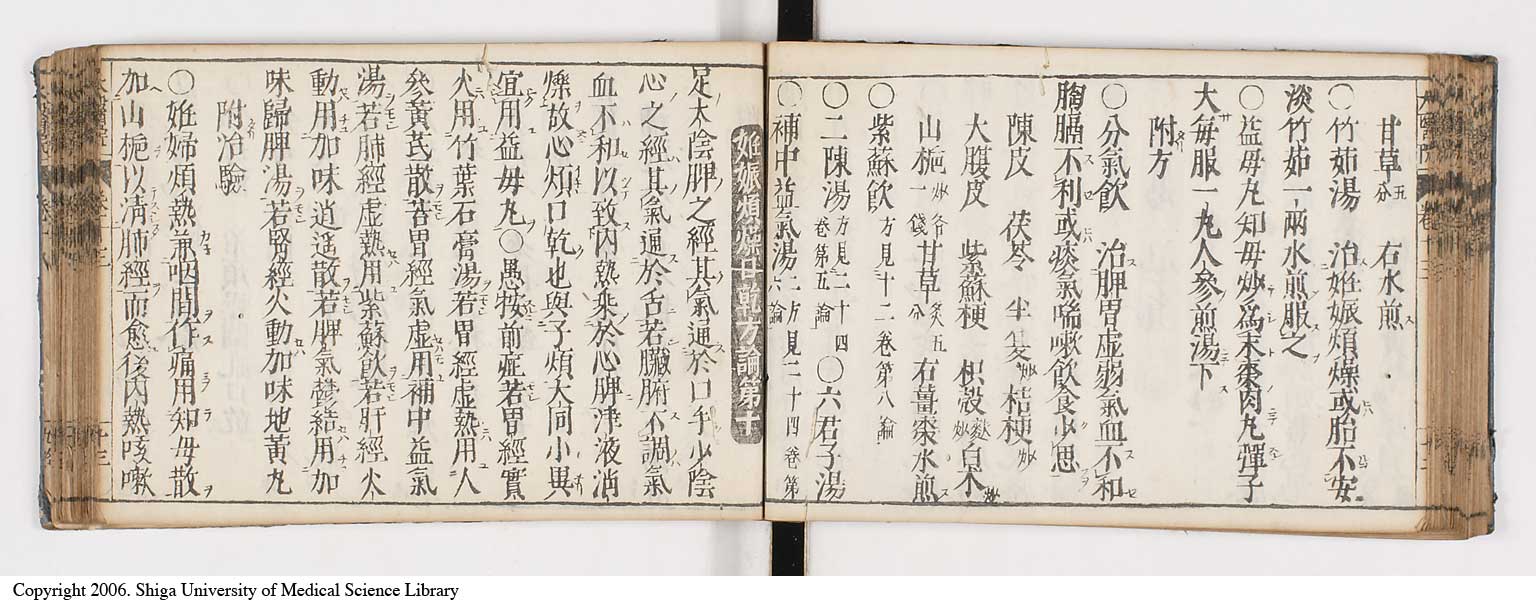 甘草五分 右水煎
○竹茹湯 治姙娠煩燥或胎不安
淡竹茹一兩水煎服之
○益母丸知母炒為末棗肉丸彈子
大每服一丸人參煎湯下
附方
○分氣飲 治脾胃虚弱氣血不和
胸膈不利或痰氣喘嗽飲食少思
陳皮 茯苓 半夏炒 桔梗炒
大腹皮 紫蘇梗 枳殼麩炒 白朮炒
山梔炒各一錢 甘草炙五分 右薑棗水煎
○紫蘇飲方見十二卷第八論
○二陳湯方見二十四卷第五論 ○六君子湯
○補中益氣湯二方見二十四卷第六論
姙娠煩燥口乾方論第十
足太陰脾之經其氣通於口手少陰
心之經其氣通於舌若臟腑不調氣
血不和以致内熱乘於心脾津液消
爍故心煩口乾也與子煩大同小異
宜用益母丸○愚按前症若胃經實
火用竹葉石膏湯若胃經虚熱用人
參黃芪散若胃經氣虚用補中益氣
湯若肺經虚熱用紫蘇飲若肝經火
動用加味逍遥散若脾氣鬱結用加
味歸脾湯若腎經火動加味地黃丸
附治驗
○姙婦煩熱兼咽間作痛用知母散
加山梔以淸肺經而愈後内熱咳嗽
Copyright 2006. Shiga University of Medical Science Library